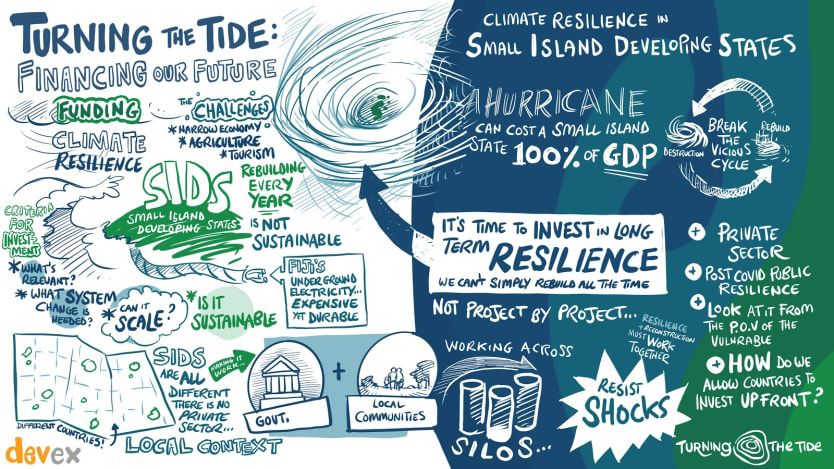 TURNING THE TIDE:
FINANCING OUR FUTURE
FUNDING
CLIMATE
RESILIENCE
THE CHALLENGES
* NARROW ECONOMY
* AGRICULTURE
* TOURISM
SIDS
SMALL ISLAND
DEVELOPING STATES
REBUILDING
EVERY
YEAR
IS NOT
SUSTAINABLE
CRITERIA
FOR
INVEST-
MENT
* WHAT'S
RELEVANT?
* WHAT SYSTEM
CHANGE IS
NEEDED?
* CAN IT
SCALE?
* IS IT
SUSTAINABLE
FIJI'S
UNDERGROUND
ELECTRICITY...
EXPENSIVE
YET DURABLE
DIFFERENT COUNTRIES!
SIDS
ARE ALL
DIFFERENT
THERE IS NO
PRIVATE
SECTOR...
LOCAL CONTEXT
MAKING IT
WORK...
GOVT.
+
LOCAL
COMMUNITIES
devex
CLIMATE RESILIENCE IN
SMALL ISLAND DEVELOPING STATES
A HURRICANE
CAN COST A SMALL ISLAND
STATE 100% OF GDP
DESTRUCTION
BREAK
THE
VICIOUS
CYCLE
REBUILD
IT'S TIME TO INVEST IN LONG
TERM RESILIENCE
WE CAN'T SIMPLY REBUILD ALL THE TIME
NOT PROJECT BY PROJECT...
RESILIENCE
+ RECONSTRUCTION
MUST WORK
TOGETHER
WORKING ACROSS
SILOS...
RESIST
SHOCKS
PRIVATE
SECTOR
POST COVID PUBLIC
RESILIENCE
LOOK AT IT FROM
THE P.O.V OF THE
VULNRABLE
HOW DO WE
ALLOW COUNTRIES TO
INVEST UPFRONT?
TURNING THE TIDE